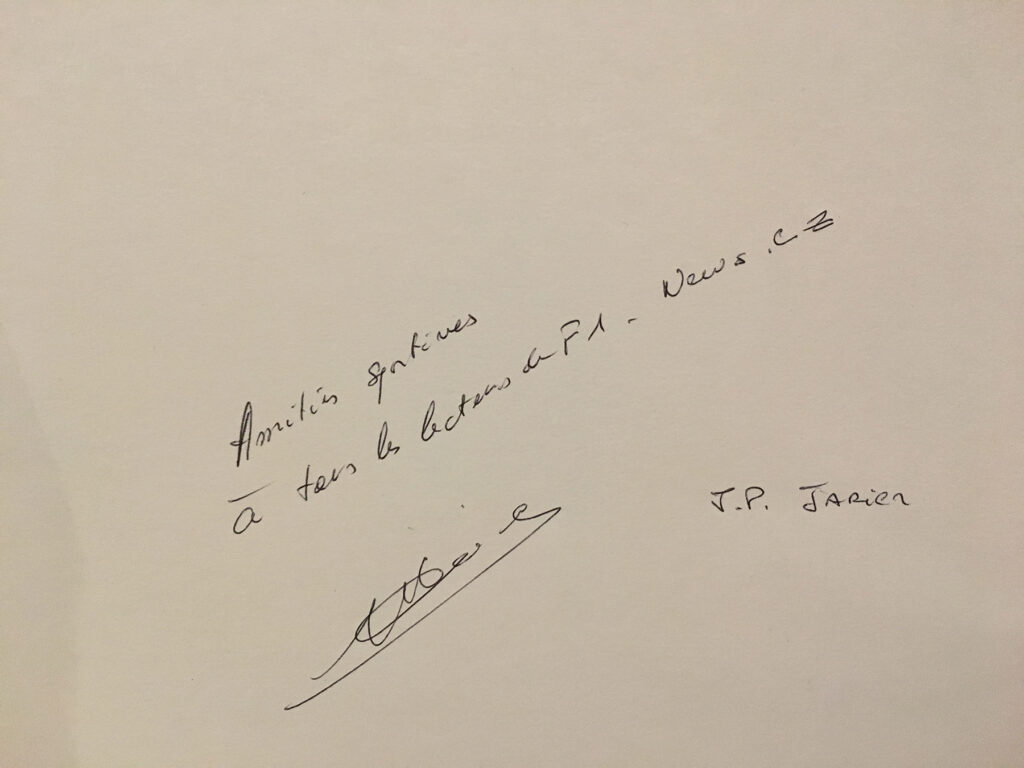 Amitiés sportives
à tous les lecteurs de F1 - News.cz
J.P. JARIER